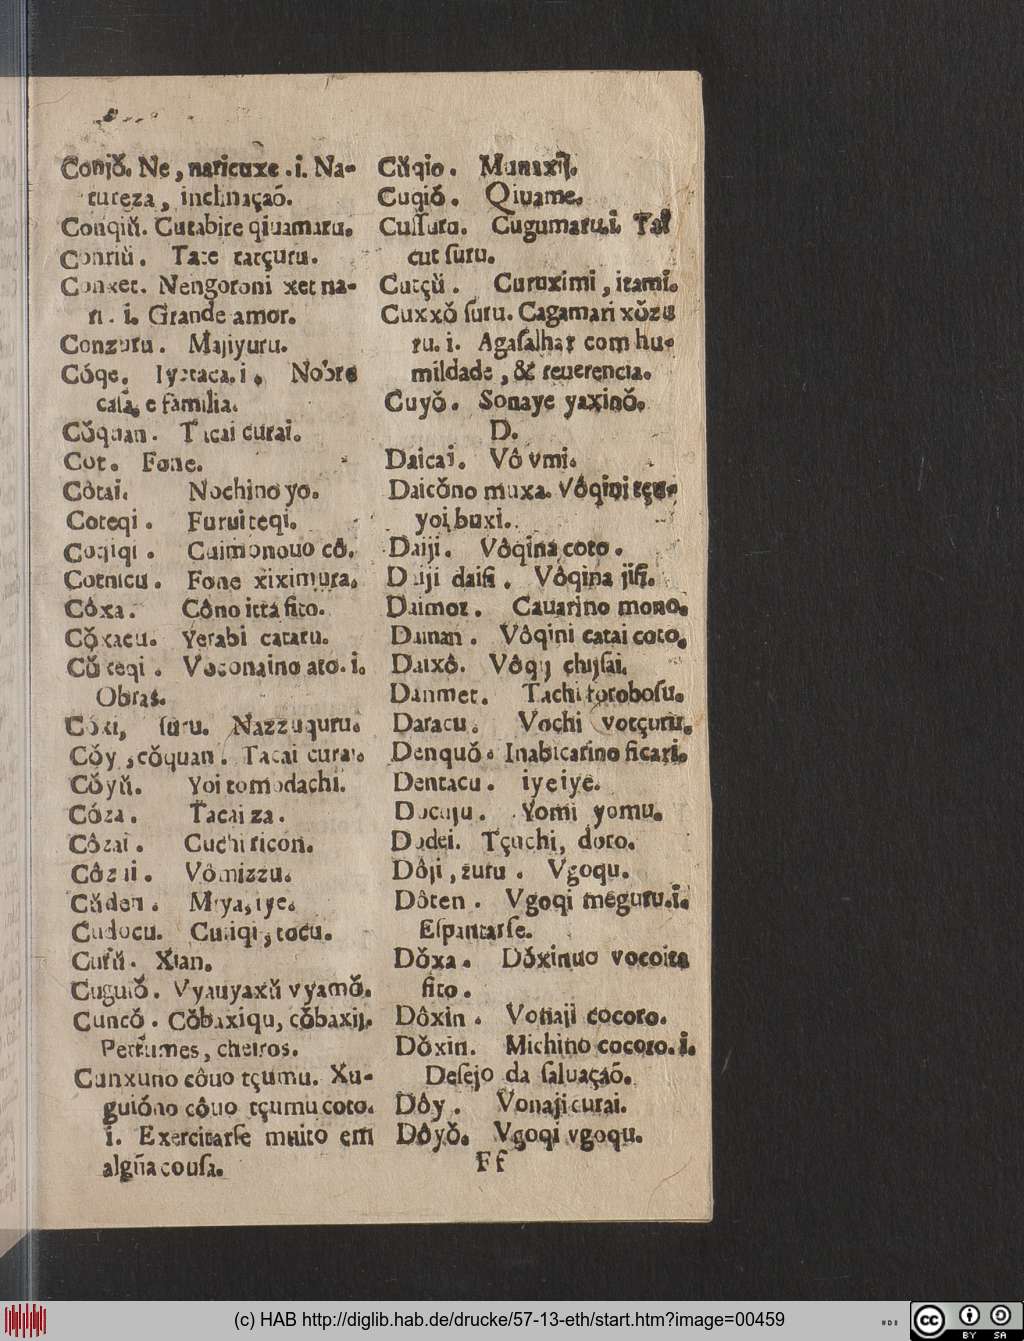 Conjǒ. Ne, naricuxe .i. Na-
tureza, inclinaçaõ.
Conqiǔ. Cutabire qiuamaru.
Conriǔ. Tate tatçuru.
Conxet. Nengoroni xet na-
ri. i. Grande amor.
Conzuru. Majiyuru.
Cóqe. Iyetaca. i. Nobre
casa, e familia.
Cǒquan. Tacai curai.
Cot. Fone.
Côtai. Nochino yo.
Coteqi. Furui teqi.
CotniCu. Fone xiximura.
Côxa. Côno itta fito.
Cǒxacu. Yerabi cataru.
Cǔ teqi. Voconaino ato. i.
Obras.
suru. Nazzuquru.
Cóy, cǒquan. Tacai curai.
Cǒyǔ. Yoi tomodachi.
Cóza. Tacai za.
Côzai. Cuchi ficori.
Côzui. Vômizzu.
Cǔden. Miya, iye.
Cudocu. Curiqi, tocu.
Xian.
Cuguiǒ. Vyauyaxǔ vyamǒ.
Cuncó. Cǒbaxiqu, cǒbaxij.
Perfumes, cheiros.
Cunxuno côuo tçumu. Xu-
guióno côuo tçumu coto.
i. Exercitarse muito em
algũa cousa.
Cǔqio. Munaxij.
Cuqiǒ. Qiuame.
Cussuru. Cugumaru. i. Tai
cut suru.
Cutçǔ. Curuximi, itami.
Cuxxǒ suru. Cagamari xǒzu
ru. i. Agasalhar com hu-
mildade, & reuerencia.
Cuyǒ. Sonaye yaxinǒ.
D.
Daicai. Vô vmi.
Daicǒno muxa. Vôqini tçu-
yoi buxi.
Daiji. Vôqina coto.
Daiji daisi. Vôqina jisi.
Daimot. Cauarino mono.
Dainan. Vôqini catai coto.
Daixô. Vôqij chijsai.
Danmet. Tachi forobosu.
Daracu. Vochi votçuru.
Denquǒ. Inabicarino ficari.
Dentacu. iye iye.
Docuju. Yomi yomu.
Dodei. Tçuchi, doro.
Dôji, zuru. Vgoqu.
Dôten. Vgoqi meguru. i.
Espantarse.
Dǒxa. Dǒxinuo vocoita
fito.
Dôxin. Vonaji cocoro.
Dǒxin. Michino cocoro. i.
Desejo da saluaçaõ.
Dôy. Vonaji curai.
Dôyǒ. Vgoqi vgoqu.
Ff
(c) HAB http://diglib.hab.de/drucke/57-13-eth/start.htm?image=00459
cc
BY SA